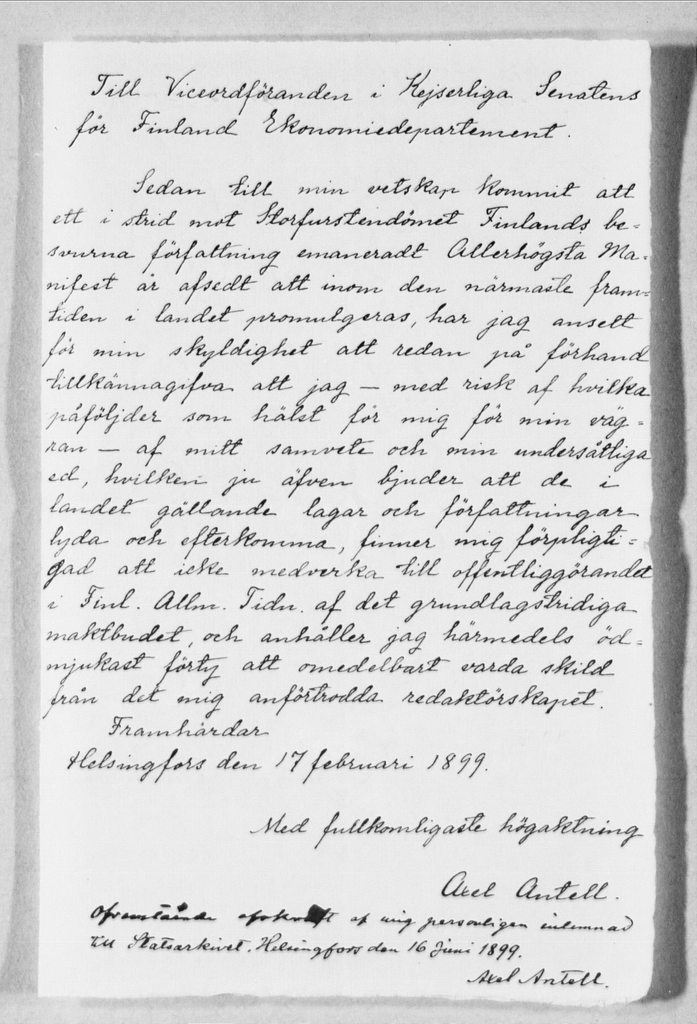 Till Viceordföranden i Kejserliga Senatens
för Finland Ekonomiedepartement.
Sedan till min vetskap kommit att
ett i strid mot Storfurstendömet Finlands be=
svurna författning emaneradt Allerhögsta Ma=
nifest är afsedt att inom den närmaste fram=
tiden i landet promulgeras, har jag ansett
för min skyldighet att redan på förhand
tillkännagifva att jag — med risk af hvilka
påföljder som hälst för mig för min väg=
ran — af mitt samvete och min undersåtliga
ed, hvilken ju äfven bjuder att de i
landet gällande lagar och författningar
lyda och efterkomma, finner mig förpligti=
gad att icke medverka till offentliggörandet
i Finl. Allm. Tidn. af det grundlagstridiga
maktbudet, och anhåller jag härmedels öd=
mjukast förty att omedelbart varda skild
från det mig anförtrodda redaktörskapet.
Framhärdar
Helsingfors den 17 februari 1899.
Med fullkomligaste högaktning
Axel Antell.
Ofvanstående afskrift af mig personligen inlemnad
till Statsarkivet. Helsingfors den 16 Juni 1899.
Axel Antell.